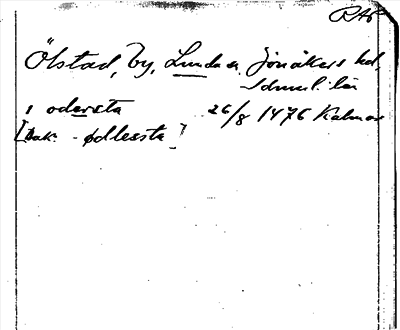 RAP
Ölstad, by, Lunda sn, Jönåkers hd,
Södmnl. län
i odersta 26/8 1476 Kalmar
[Bak: - ødlessta]